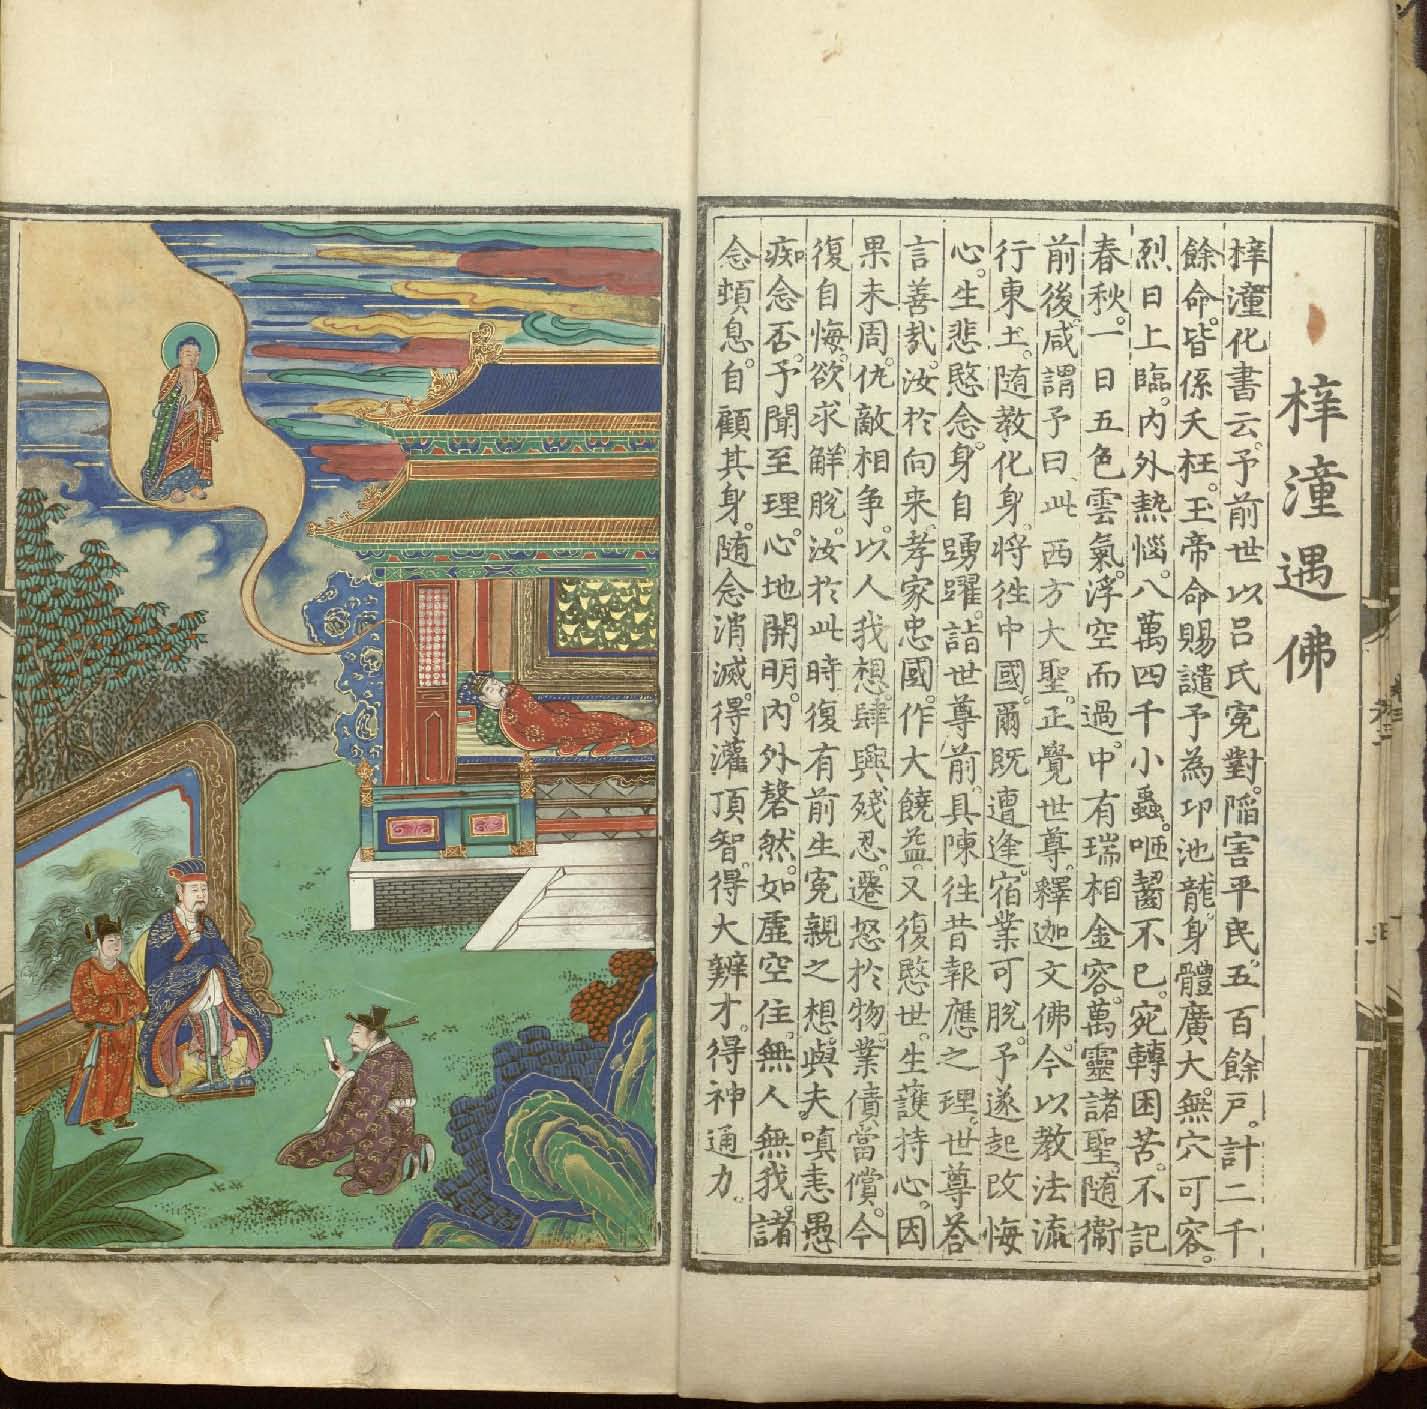 梓潼遇佛
梓潼化書云。予前世以呂氏寃對。陷害平民。五百餘戶。計二千
餘命。皆係夭枉。玉帝命賜譴予為邛池龍。身體廣大。無穴可容。
烈日上臨。內外熱惱。八萬四千小蟲。咂齧不已。宛轉困苦。不記
春秋。一日五色雲氣。浮空而過。中有瑞相金容。萬靈諸聖。隨衞
前後。咸謂予曰、此西方大聖。正覺世尊。釋迦文佛。今以教法流
行東土。隨教化身。將徃中國。爾既遭逢。宿業可脫。予遂起改悔
心。生悲愍念。身自踴躍。詣世尊前。具陳徃昔報應之理。世尊荅
言善哉。汝於向来。孝家忠國。作大饒益。又復愍世。生護持心。因
果未周。仇敵相爭。以人我想。肆興殘忍。遷怒於物。業債當償。今
復自悔。欲求解脫。汝於此時。復有前生寃親之想。與夫嗔恚愚
痴念否。予聞至理。心地開明。內外罄然。如虛空住。無人無我。諸
念頓息。自顧其身。隨念消滅。得灌頂智。得大辨才。得神通力。